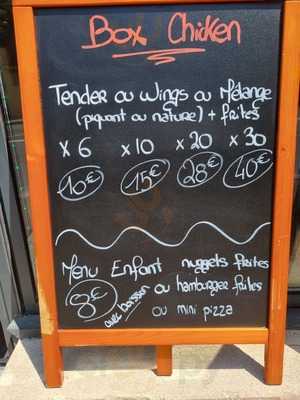 Box Chicken
Tender ou Wings ou Mélange
(piquant ou nature) + frites
x 6 x 10 x 20 x 30
10€ 15€ 28€ 40€
Menu Enfant nuggets frites
8€ avec boisson ou hamburger frites
ou mini pizza